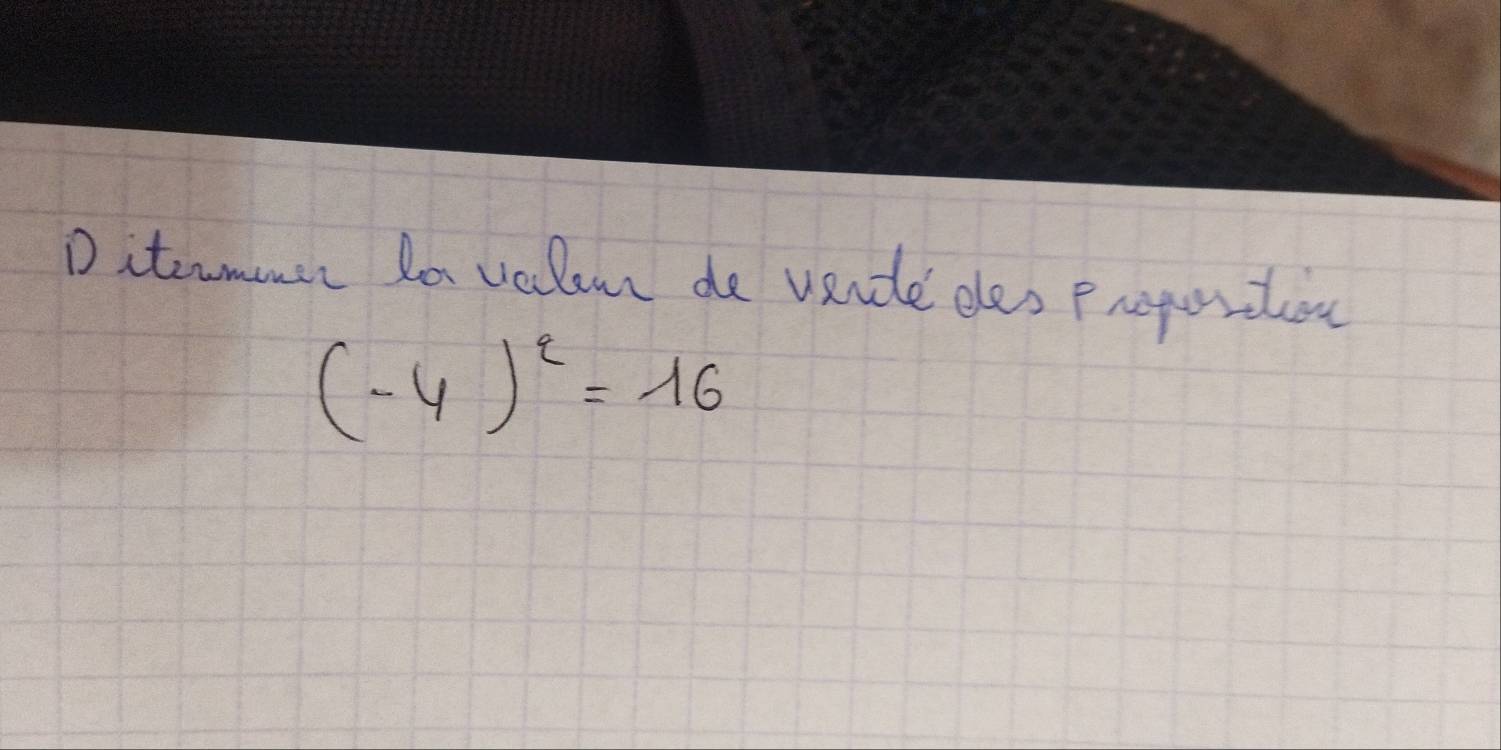 Diterminer la valeur de verité des Proposition
(-4)² = 16